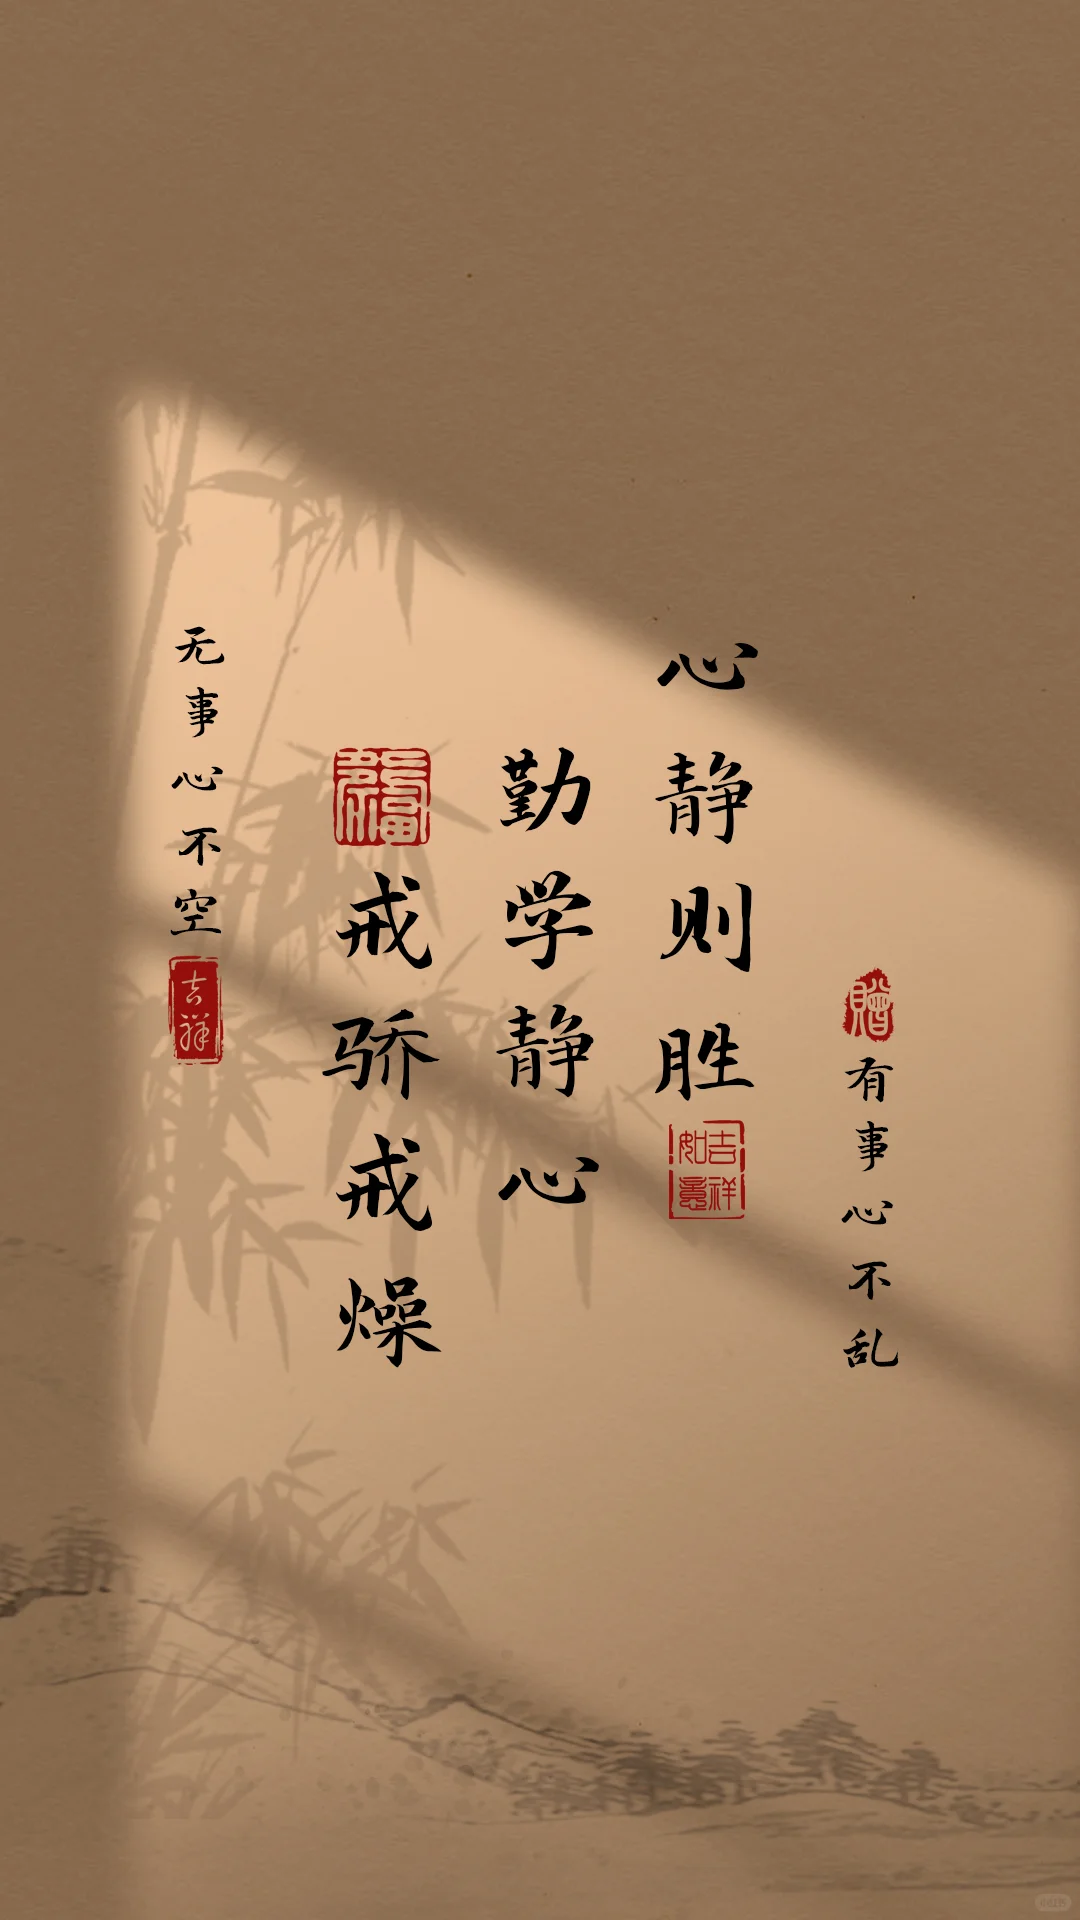 赠
有事心不乱
心静则胜
吉祥如意
勤学静心
戒骄戒燥
无事心不空
吉祥